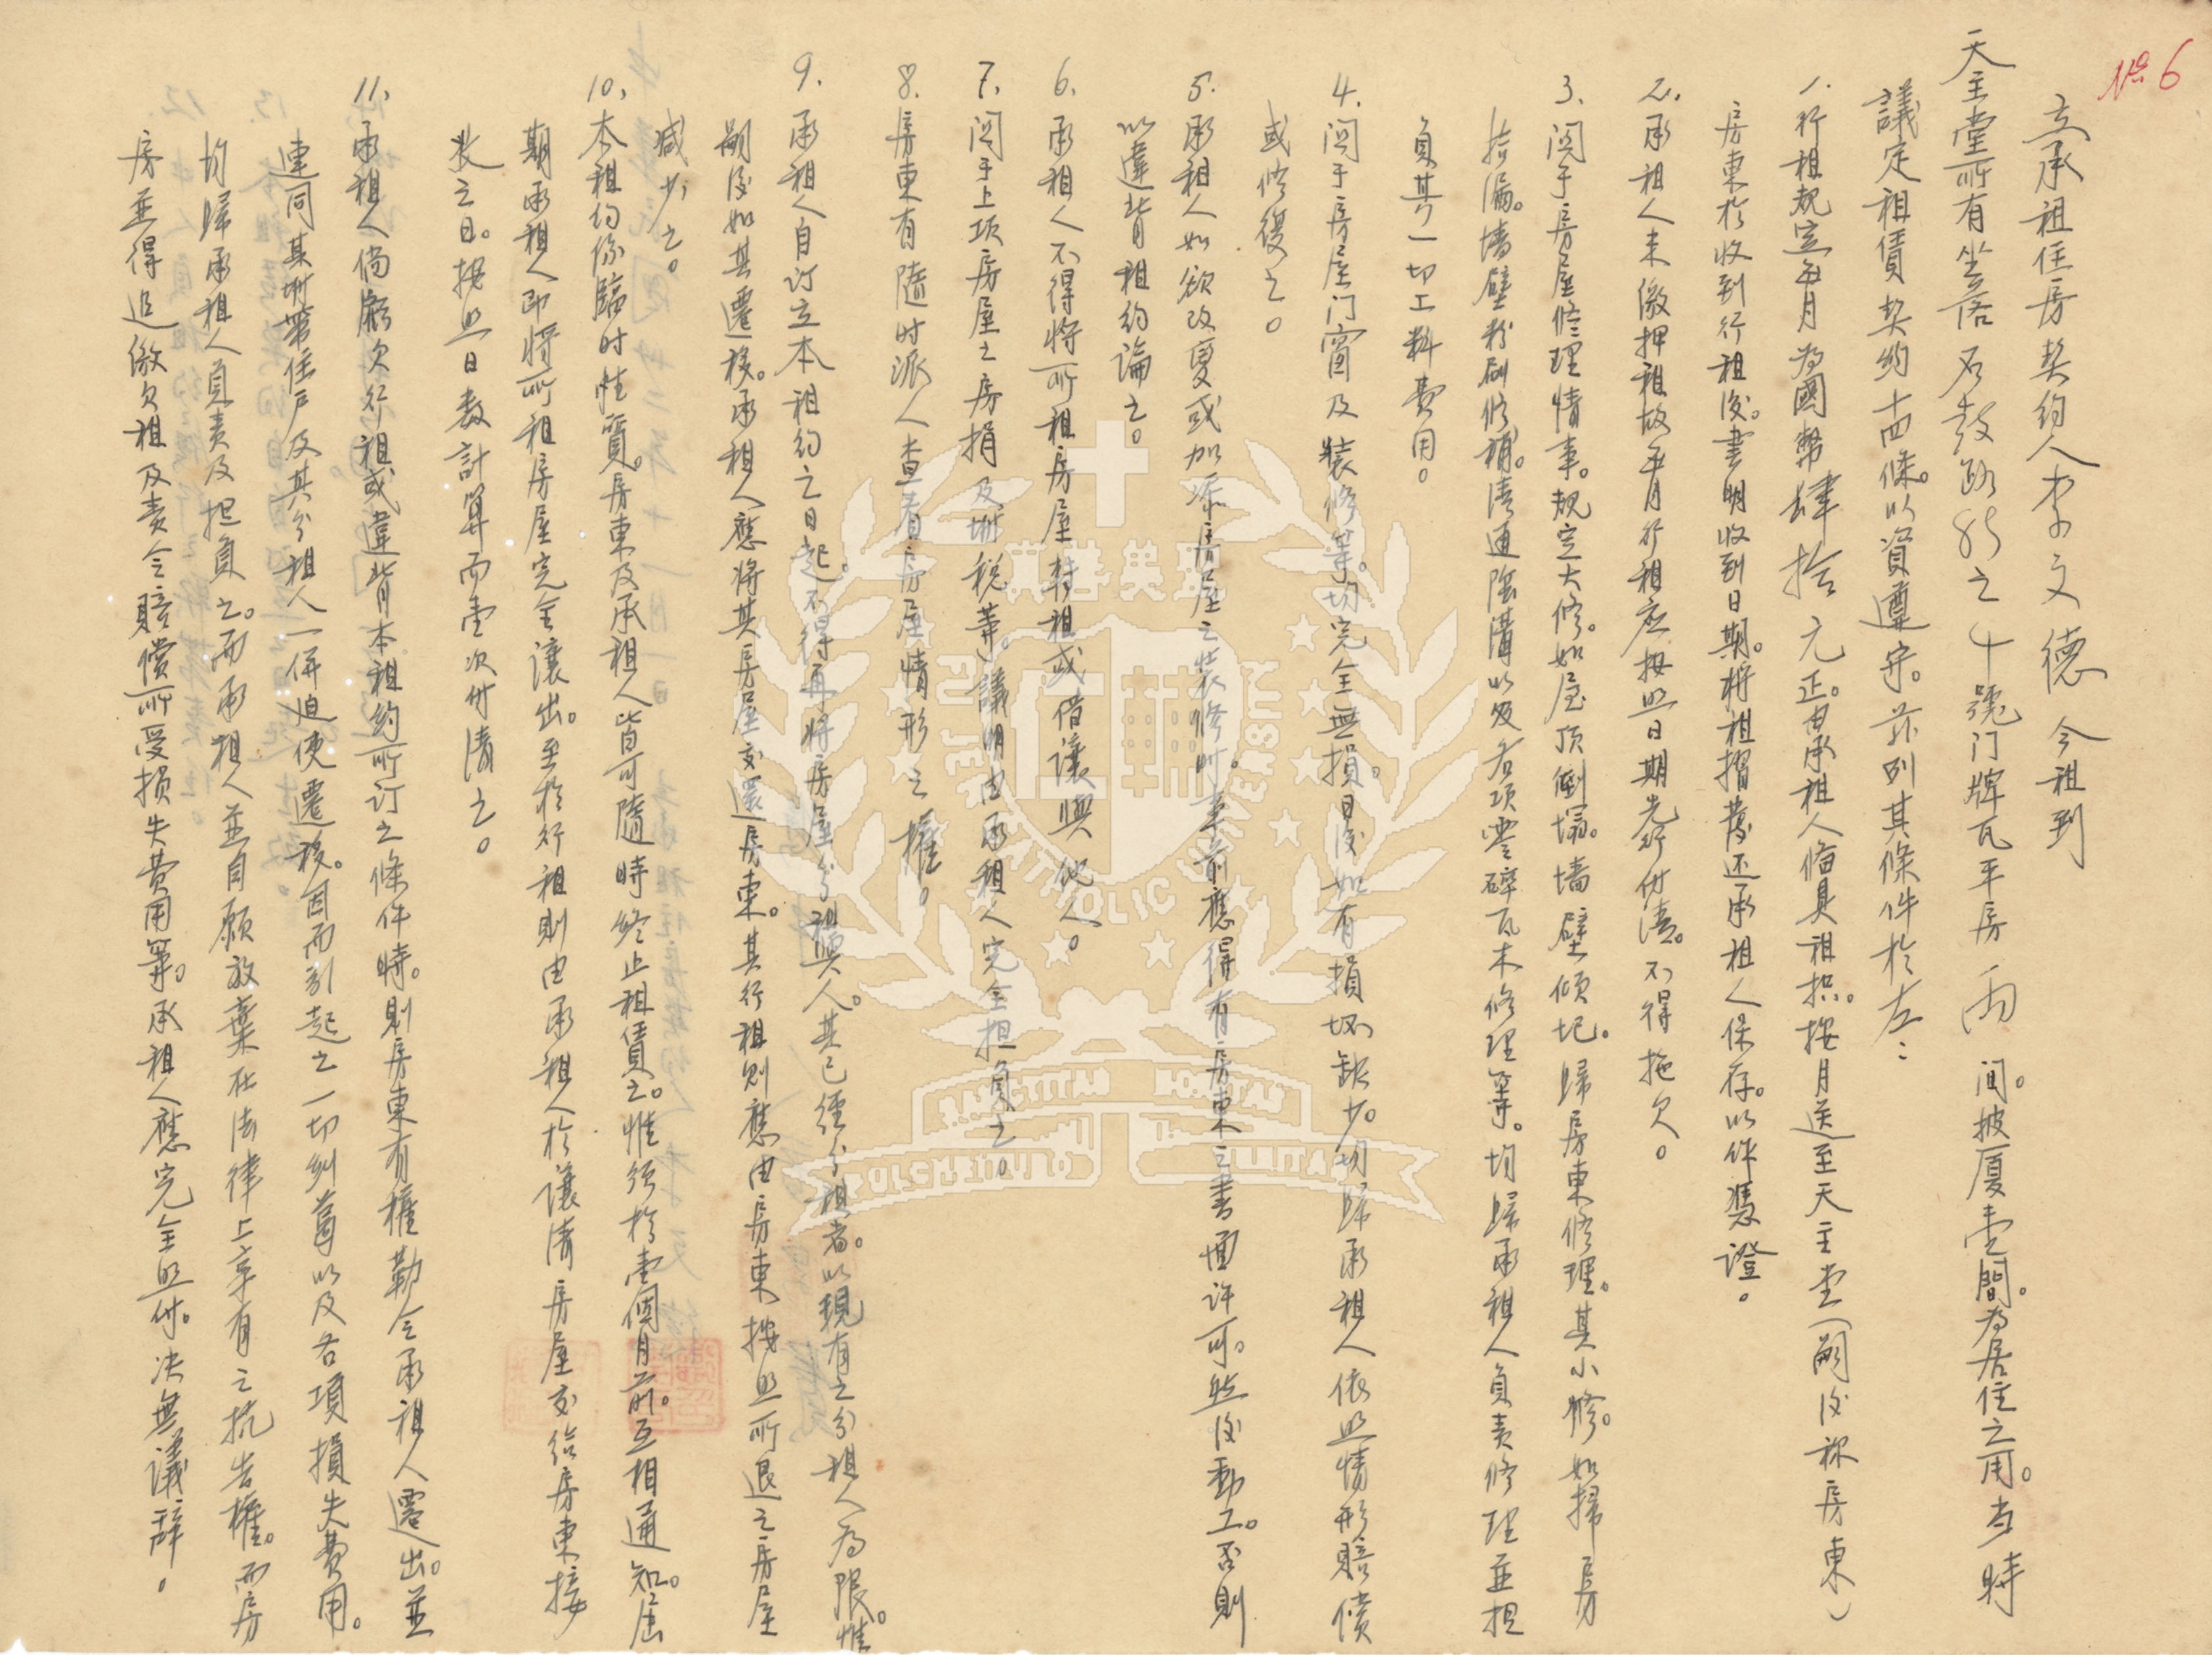 № 6
立承租住房契約人李文德今租到
天主堂所有坐落石鼓路85之4號门牌瓦平房兩間。披厦壹間。為居住之用。当時
議定租賃契約十四條。以資遵守。茲列其條件於左：
1. 行租規定每月為國幣肆拾元正。由承租人偹具租摺。按月送至天主堂（嗣後称房東）
房東於收到行租後。書明收到日期。將租摺發还承租人保存。以作憑證。
2. 承租人未繳押租故每月行租应按照日期先行付清。不得拖欠。
3. 関于房屋修理情事。規定大修。如屋顶倒塌。墙壁傾圮。歸房東修理。其小修。如掃房
拾漏。墙壁粉刷修補。清通陰溝以及各項零碎瓦木修理等。均歸承租人負责修理並担
負其一切工料費用。
4. 関于房屋门窗及裝修等。均完全無損。日後如有損坏缺少。均歸承租人依照情形賠償
或修復之。
5. 承租人如欲改变或加添房屋之裝修时。事前應得有房東之書面许可。然後動工。否則
以違背租約論之。
6. 承租人不得将所租房屋转租或借讓與他人。
7. 関于上項房屋之房捐及坿税等。議明由承租人完全担負之。
8. 房東有隨时派人查看房屋情形之權。
9. 承租人自订立本租約之日起。不得再将房屋分租與人。其已經分租者。以現有之分租人為限。惟
嗣後如其遷移。承租人應将其房屋交還房東。其行租则應由房東按照所退之房屋
減少之。
10. 本租约係臨时性質。房東及承租人皆可隨時終止租賃之。惟須於壹個月前。互相通知。屆
期承租人即將所租房屋完全讓出。至於行租則由承租人於讓清房屋交给房東接
收之日。按照日数計算而壹次付清之。
11. 承租人倘虧欠行租或違背本租約所订之條件時。則房東有權勒令承租人遷出。並
連同其坿帶住戶及其分租人一併迫使遷移。因而引起之一切糾葛以及各項損失費用。
均歸承租人負责及担負之。而承租人並自願放棄在法律上享有之抗告權。而房
房並得追繳欠租及责令賠償所受損失費用等。承租人應完全照付。决無議辞。